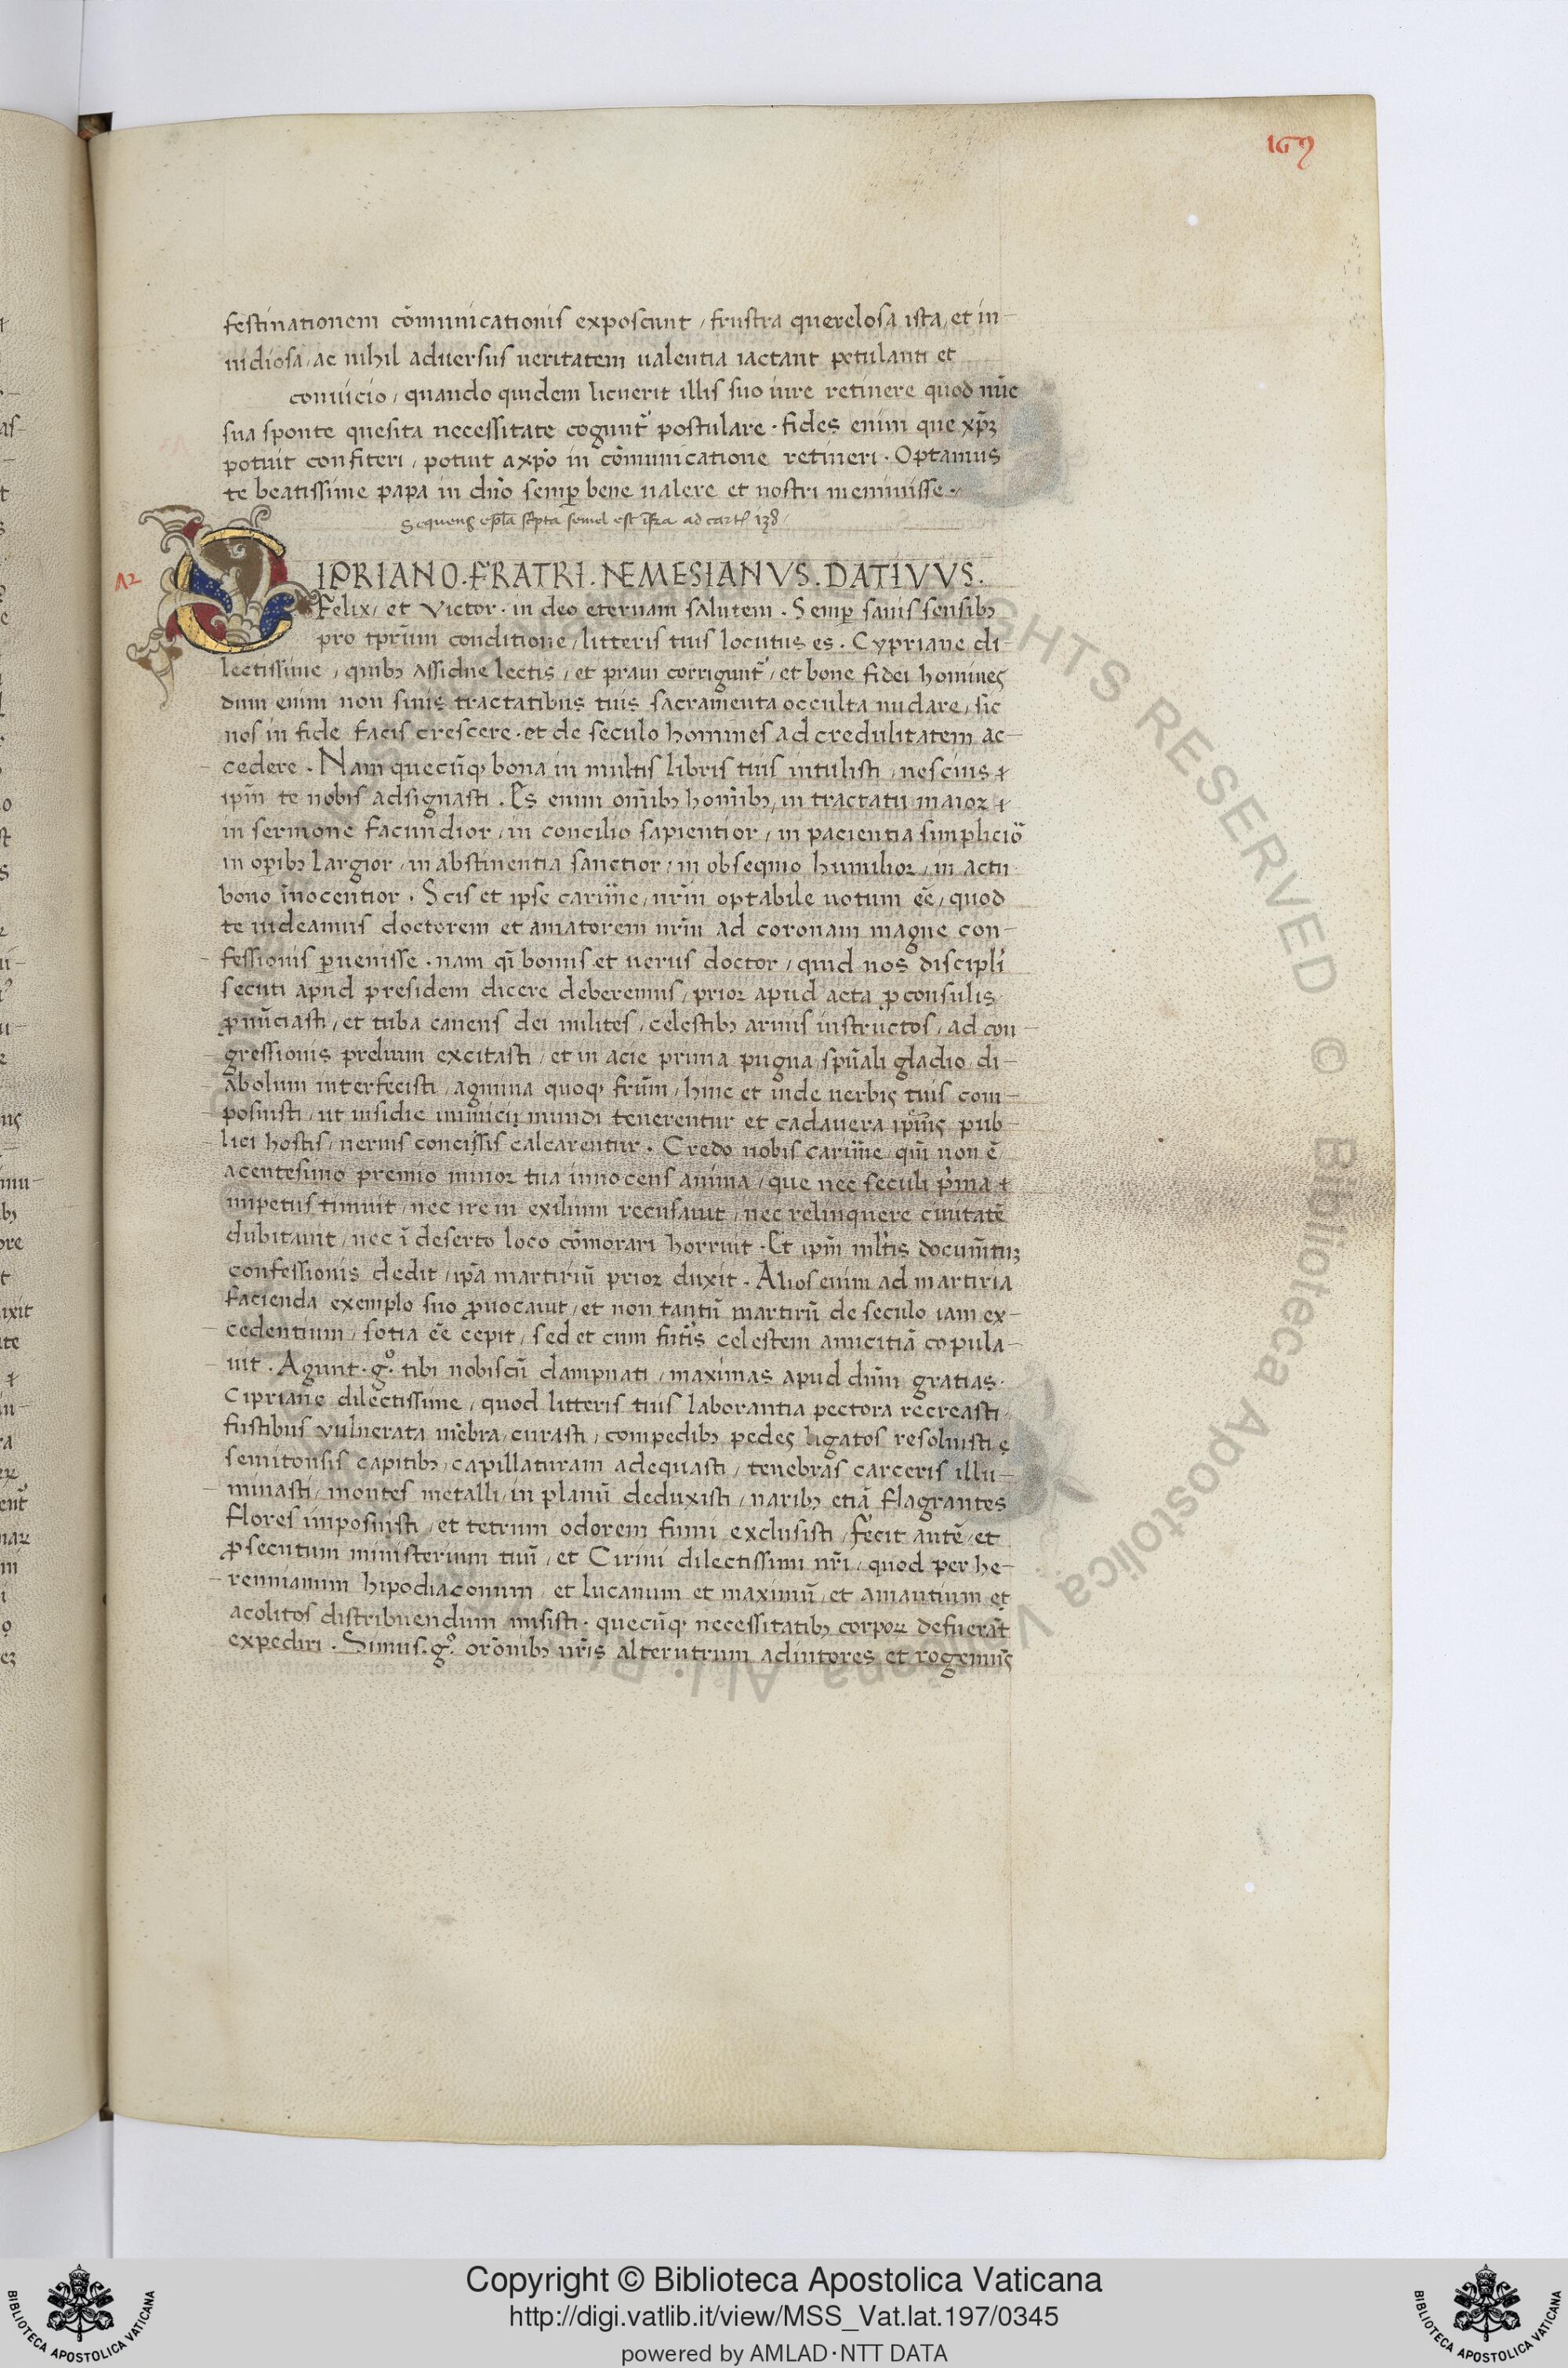 167
festinationem cōmunicationis exposcunt / frustra querelosa ista / et in-
uidiosa / ac nihil adversus ueritatem ualentia iactant petulanti et
conuicio / quando quidem licuerit illis suo iure retinere quod nūc
sua sponte quesita necessitate cogunt᷑ postulare · fides enim que xp̄ꝫ
potuit confiteri / potuit a xp̄o in cōmunicatione retineri · Optamus
te beatissime papa in dn̄o semꝑ bene ualere et nostri meminisse ·/
Sequens epl̄a sc̄pta semel est ifra ad cart 138
12
CIPRIANO . FRATRI . NEMESIANVS . DATIVVS .
Felix / et Victor · in deo eternam salutem · Semꝑ sanis sensibꝫ
pro tpr̄um conditione / litteris tuis locutus es . Cypriane di-
lectissime / quibꝫ assidue lectis / et praui corrigunt᷑ / et bone fidei homines
dum enim non sinis tractatibus tuis sacramenta occulta nudare / sic
nos in fide facis crescere · et de seculo homines ad credulitatem ac-
cedere · Nam quecūqꝫ bona in multis libris tuis intulisti / nescius ⁊
ip̄m te nobis adsignasti . Es enim om̄ibꝫ hom̄ibꝫ / in tractatu maior ⁊
in sermone facundior / in concilio sapientior / in pacientia simpliciō
in oꝑibꝫ largior / in abstinentia sanctior / in obsequio humilior / in actu
bono īnocentior . Scis et ipse carim̄e / nr̄m optabile uotum eē / quod
te uideamus doctorem et amatorem nr̄m ad coronam magne con-
fessionis ꝑuenisse · nam qi bonus et uerus doctor / quid nos discipl̄i
secuti apud presidem dicere deberemus / prior apud acta ꝓconsulis
ꝓnūciasti / et tuba canens dei milites / celestibꝫ armis instructos / ad con-
gressionis prelium excitasti / et in acie prima pugna sp̄uali gladio di-
abolum interfecisti / agmina quoqꝫ frūm / hinc et inde uerbis tuis com-
posuisti / ut insidie inimicij mundi tenerentur et cadauera ip̄ius pub-
lici hostis / neruis concissis calcarentur . Credo nobis carim̄e qm̄ non ē
a centesimo premio minor tua innocens anima / que nec seculi pͥma ⁊
impetus timuit / nec ire in exilium recusauit / nec relinquere ciuitatē
dubitauit / nec ī deserto loco cōmorari horruit · Et ip̄m ml̄tis docum̄tuꝫ
confessionis dedit / ip̄a martiriū prior duxit . Alios enim ad martiria
facienda exemplo suo ꝓuocauit / et non tantū martirū de seculo iam ex-
cedentium / sotia eē cepit / sed et cum fut͛is celestem amicitiā copula-
uit . Agunt . gͦ. tibi nobiscū dampnati / maximas apud dūm gratias .
Cipriane dilectissime / quod litteris tuis laborantia pectora recreasti
fustibus vulnerata mēbra / curasti / compedibꝫ pedes ligatos resoluisti
semitonsis capitibꝫ / capillaturam adequasti / tenebras carceris illu-
minasti / montes metalli / in planū deduxisti / naribꝫ etiā flagrantes
flores imposuisti / et tetrum odorem fumi exclusisti / fecit autē / et
ꝓsecutum ministerium tuū / et Cirini dilectissimi nr̄i / quod per he-
rennianum hipodiaconum / et lucanum et maximū / et amantium et
acolitos distribuendum misisti · quecūqꝫ necessitatibꝫ corpoꝝ defuerāt
expediri . Simus . gͦ. orōnibꝫ nr̄is alterutrum adiutores et rogemus
ALL RIGHTS RESERVED © Biblioteca Apostolica Vaticana
Copyright © Biblioteca Apostolica Vaticana
http://digi.vatlib.it/view/MSS_Vat.lat.197/0345
powered by AMLAD·NTT DATA
BIBLIOTECA APOSTOLICA VATICANA
BIBLIOTECA APOSTOLICA VATICANA